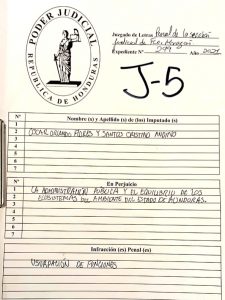 PODER JUDICIAL
REPUBLICA DE HONDURAS
Juzgado de Letras Penal de la sección
Judicial de Fco. Morazán
Expediente N° Año 2021
J-5
N° Nombre (s) y Apellido (s) de (los) Imputado (s)
1 OSCAR ORLANDO FLORES Y SANTOS CRISTINO ANDINO
2
3
4
5
6
7
N° En Perjuicio
1 LA ADMINISTRACIÓN PUBLICA Y EL EQUILIBRIO DE LOS
2 ECOSISTEMAS DEL AMBIENTE DEL ESTADO DE HONDURAS.
3
4
5
6
7
Infracción (es) Penal (es)
USURPACIÓN DE FUNCIONES